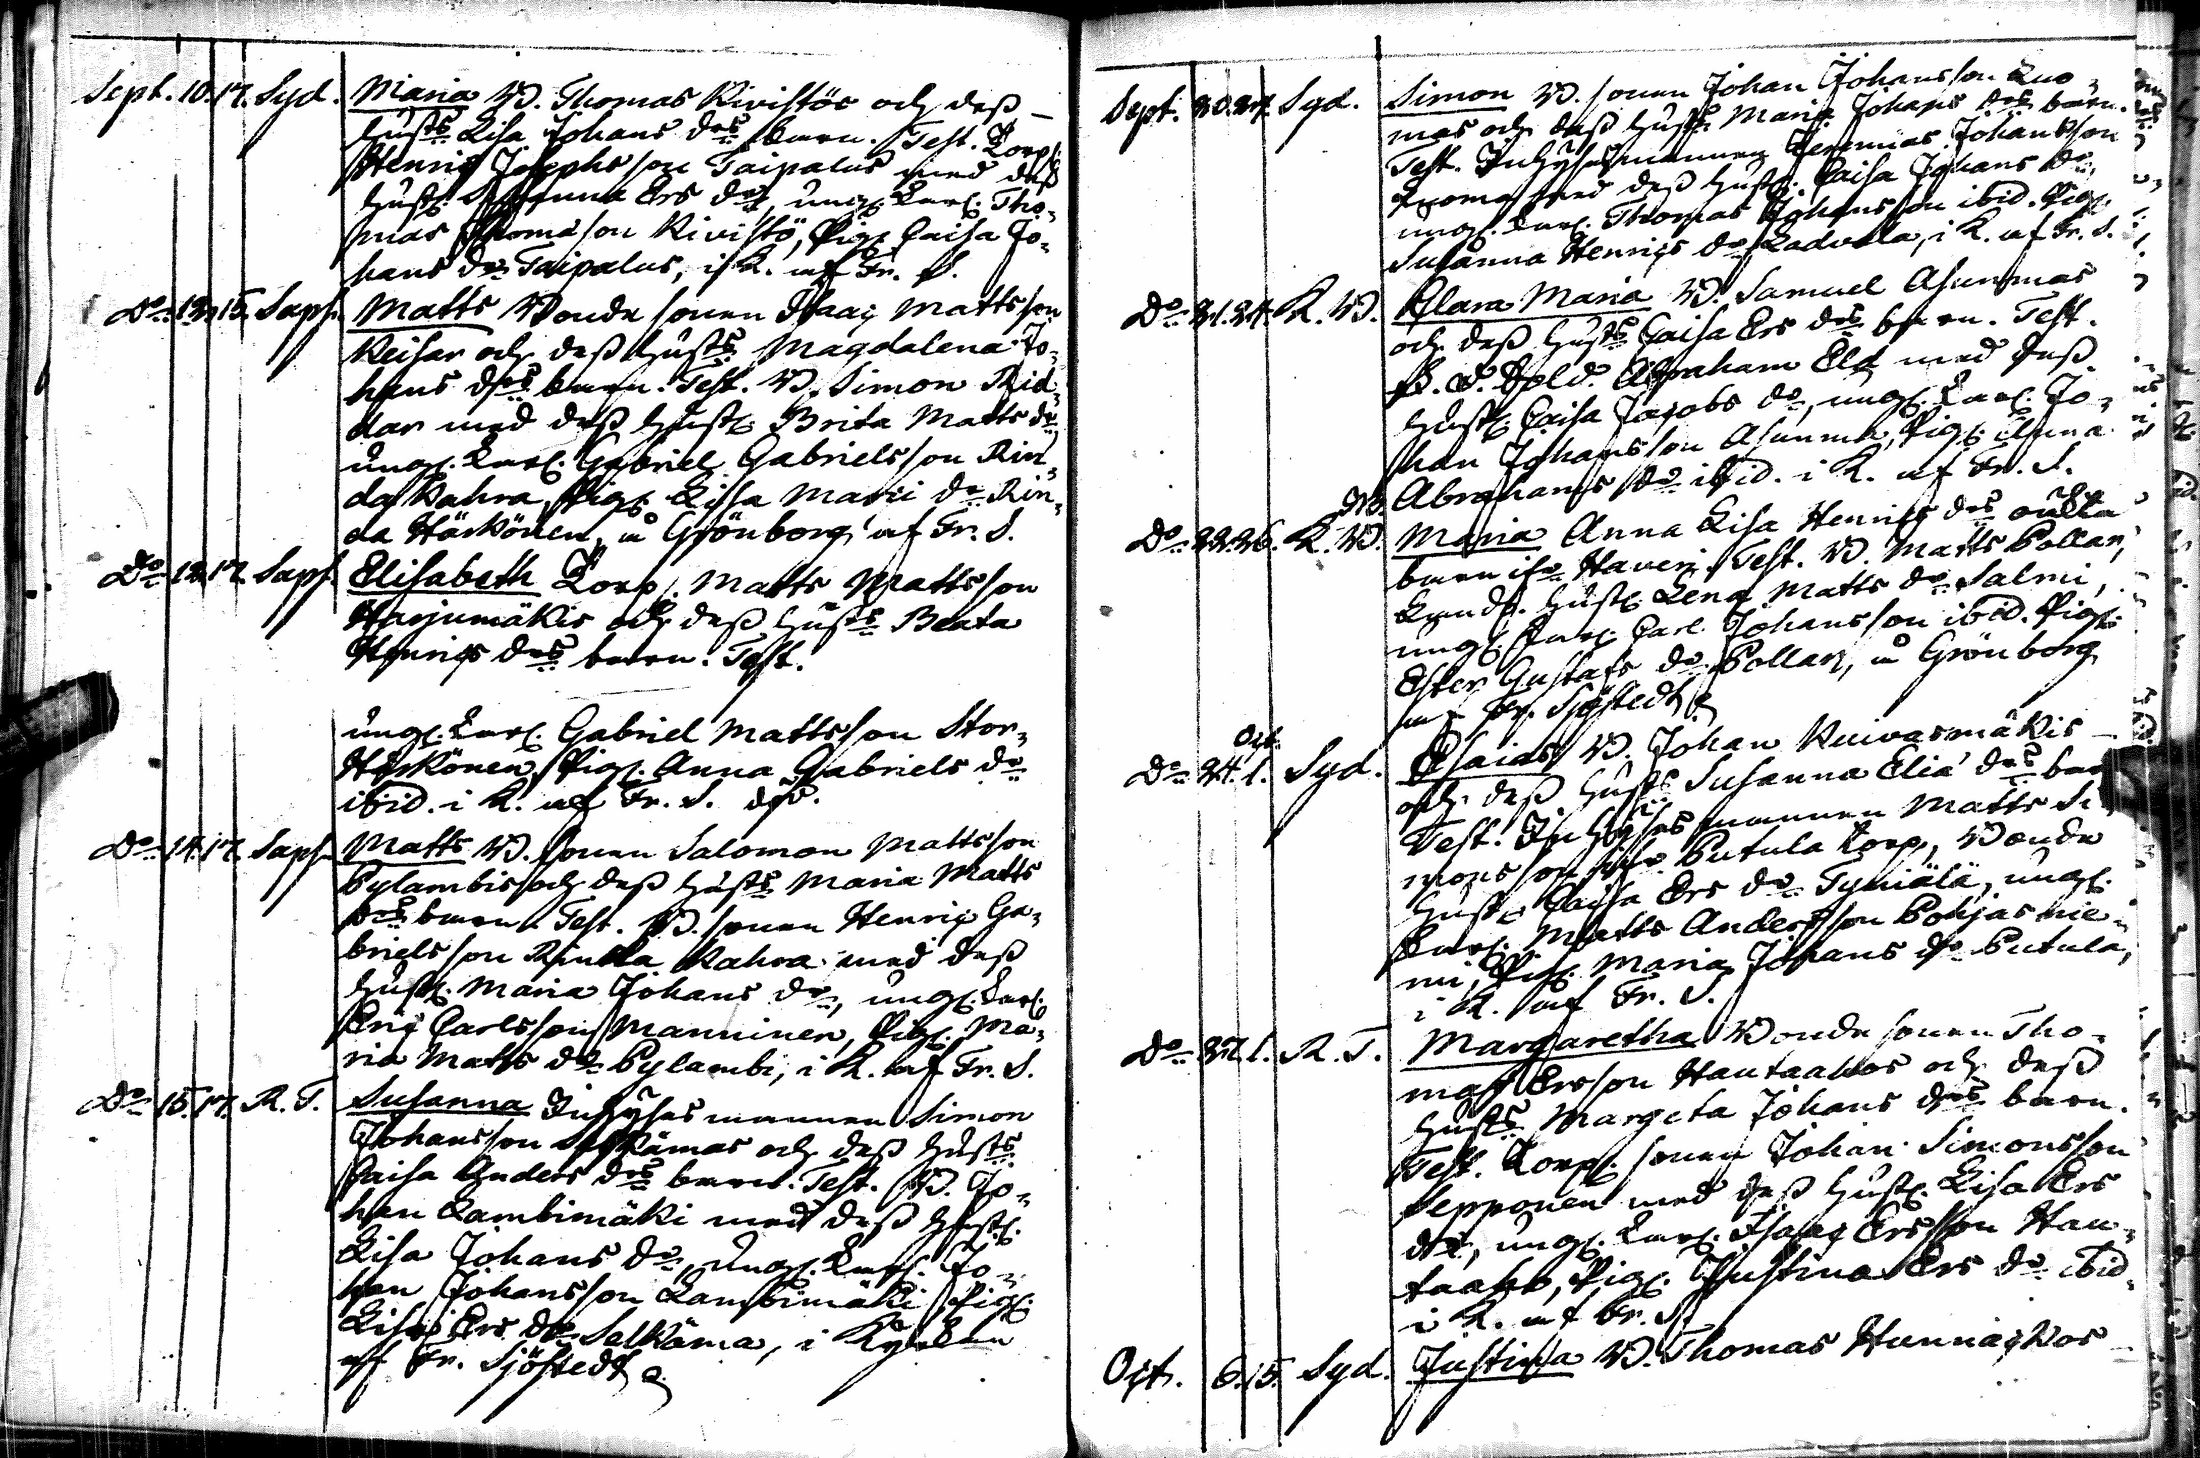 Sept. 10. 17. Syd. Maria B. Thomas Kivistös och dess
hust:s Lisa Johans d:rs barn. Test. Torp.
Henric Josephsson Taipalus med dess
hust. Susanna Ers d:r, ung. kar. Tho-
mas Thomasson Kivistö, Pig. Caisa Jo-
hans d:r Taipalus, i K. af Fr. S.
D:o 12. 15. Lapf. Matts Bonde sonen Isaac Mattsson
Keisar och dess hust:s Magdalena Jo-
hans d:rs barn. Test. B. Simon Rid-
dar med dess hust. Brita Matts d:r
ung. kar. Gabriel Gabrielsson Rin-
da Kahra, Pig. Lisa Mari d:r Rin-
da Härkönen, å Grönborg af Fr. S.
D:o 12. 17. Lapf. Elisabeth Torp. Matts Mattsson
Harjumäkis och dess hust:s Beata
Henrics d:rs barn. Test.
ung. kar. Gabriel Mattsson Stor-
Härkönen, Pig. Anna Gabriels d:r
ibid. i K. af Fr. S.
D:o 14. 17. Lapf. Matts B. sonen Salomon Mattsson
Pylambis och dess hust:s Maria Matts
d:rs barn. Test. B. sonen Henric Ga-
brielsson Rinda Kahra med dess
hust. Maria Johans d:r, ung. kar.
Eric Carlsson Manninen, Pig. Ma-
ria Matts d:r Pylambi, i K. af Fr. S.
D:o 15. 17. R. T. Susanna Inhyses mannen Simon
Johansson Selkämas och dess hust:s
Caisa Anders d:rs barn. Test. B. Jo-
han Lambimäki med dess hust.
Lisa Johans d:r, ung. kar. Jo-
han Johansson Lambimäki, Pig.
Lisa Ers d:r Selkäma, i Kyrkan
af Fr. Sjöstedt
Sept. 20. 24. Syd. Simon B. sonen Johan Johansson Luo-
mas och dess hust:s Maria Johans d:rs barn.
Test. Inhysesmannen Jeremias Johansson
Luoma med dess hust. Caisa Johans d:r,
ung. kar. Thomas Johansson ibid. Pig.
Susanna Henrics d:r Ladvala, i K. af Fr. S.
D:o 21. 24. K. B. Clara Maria B. Samuel Asunmas
och dess hust:s Caisa Ers d:rs barn. Test.
Sold. Abraham Eld med dess
hust. Caisa Jacobs d:r, ung. kar. Jo-
han Johansson Asunma, Pig. Anna
Abrahams d:r ibid. i K. af Fr. S.
D:o 22. 26. K. B. Maria Anna Lisa Henrics d:rs oäkta
barn Haveri. Test. B. Matts Pollari,
Bonde. hust. Lena Matts d:r Salmi,
ung. kar. Carl Johansson ibid. Pig.
Ester Gustafs d:r Pollari, å Grönborg
af Fr. Sjöstedt
Oct.
D:o 24. 1. Syd. Esaias B. Johan Kuivasmäkis
och dess hust:s Susanna Elia d:rs bar
Test. Inhyses mannen Matts Si
monsson Putula Torp, Bonde
hust. Caisa Ers d:r Tyniälä, ung.
kar. Matts Andersson Pohjasnie-
mi, Pig. Maria Johans d:r Putula,
i K. af Fr. S.
D:o 27. 1. R. T. Margaretha Bonde sonen Tho-
mas Ersson Hautaahos och dess
hust:s Margeta Johans d:rs barn.
Test. Torp. sonen Johan Simonsson
Sepponen med dess hust. Lisa Ers
d:r, ung. kar. Isaac Ersson Hau-
taaho, Pig. Justina Ers d:r ibid.
i K. af Fr. S.
Oct. 6. 15. Syd. Justina B. Thomas Hunnakos